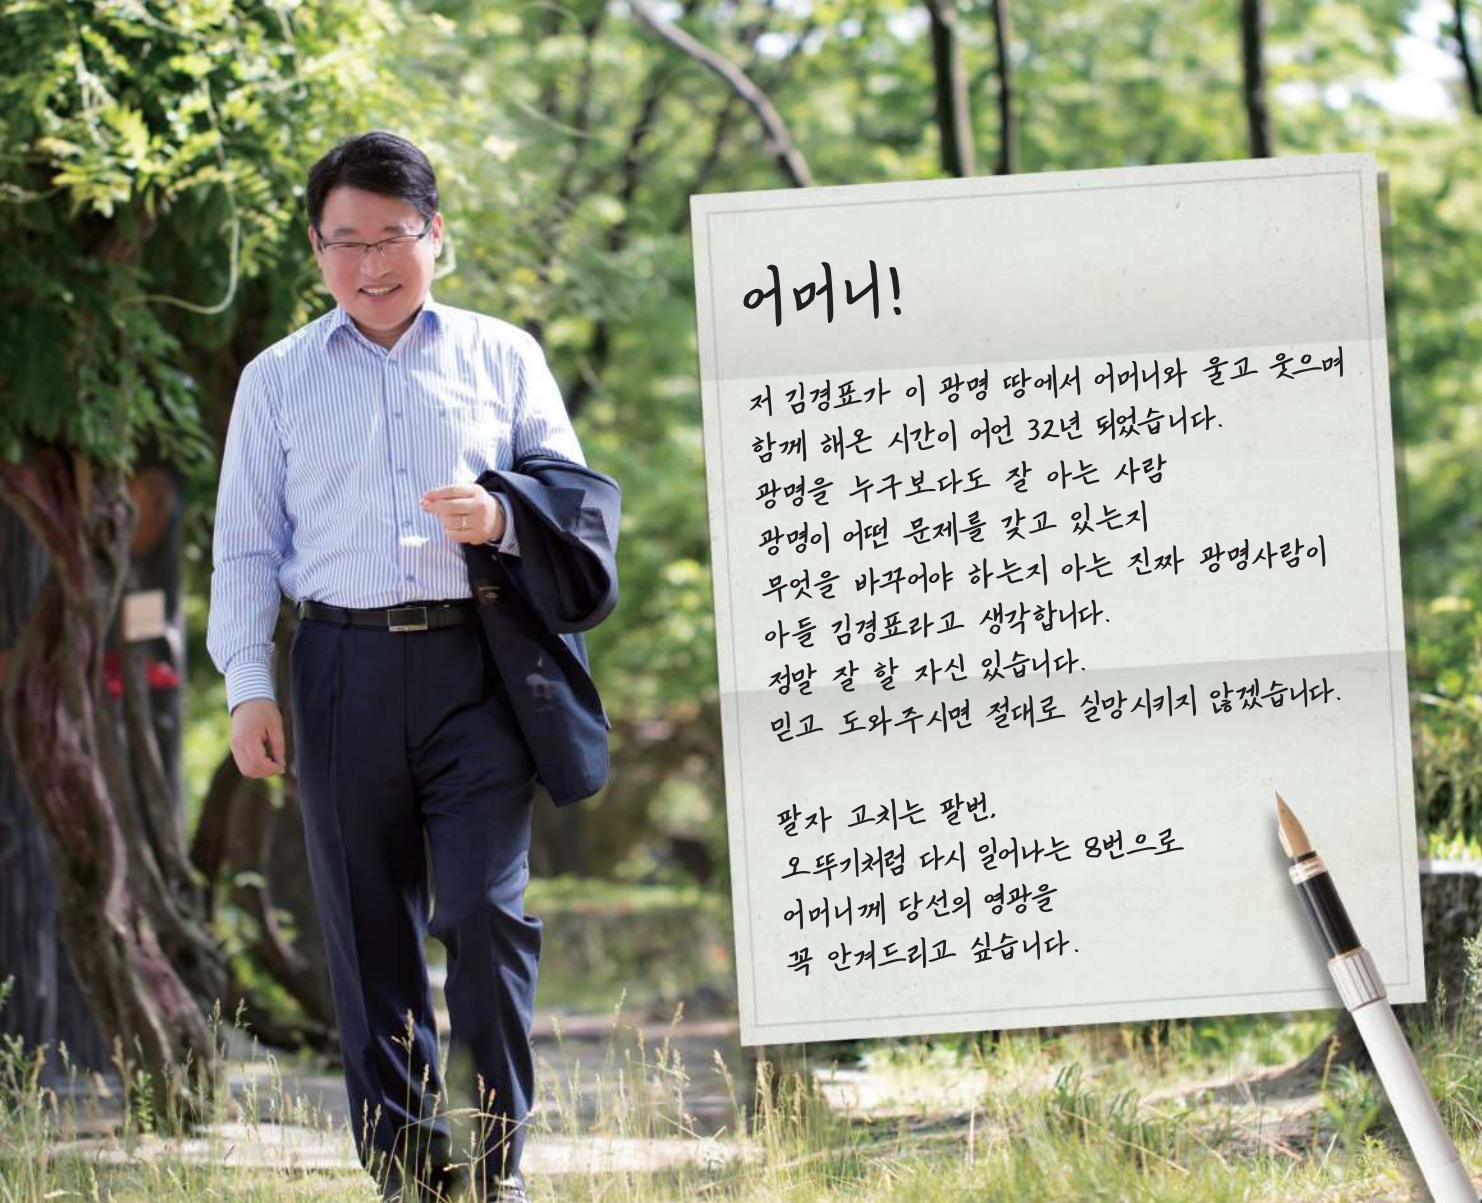 어머니!
저 김경표가 이 광명 땅에서 어머니와 울고 웃으며
함께 해온 시간이 어언 32년 되었습니다.
광명을 누구보다도 잘 아는 사람
광명이 어떤 문제를 갖고 있는지
무엇을 바꾸어야 하는지 아는 진짜 광명사람이
아들 김경표라고 생각합니다.
정말 잘 할 자신 있습니다.
믿고 도와주시면 절대로 실망시키지 않겠습니다.
팔자 고치는 팔번,
오뚜기처럼 다시 일어나는 8번으로
어머니께 당선의 영광을
꼭 안겨드리고 싶습니다.